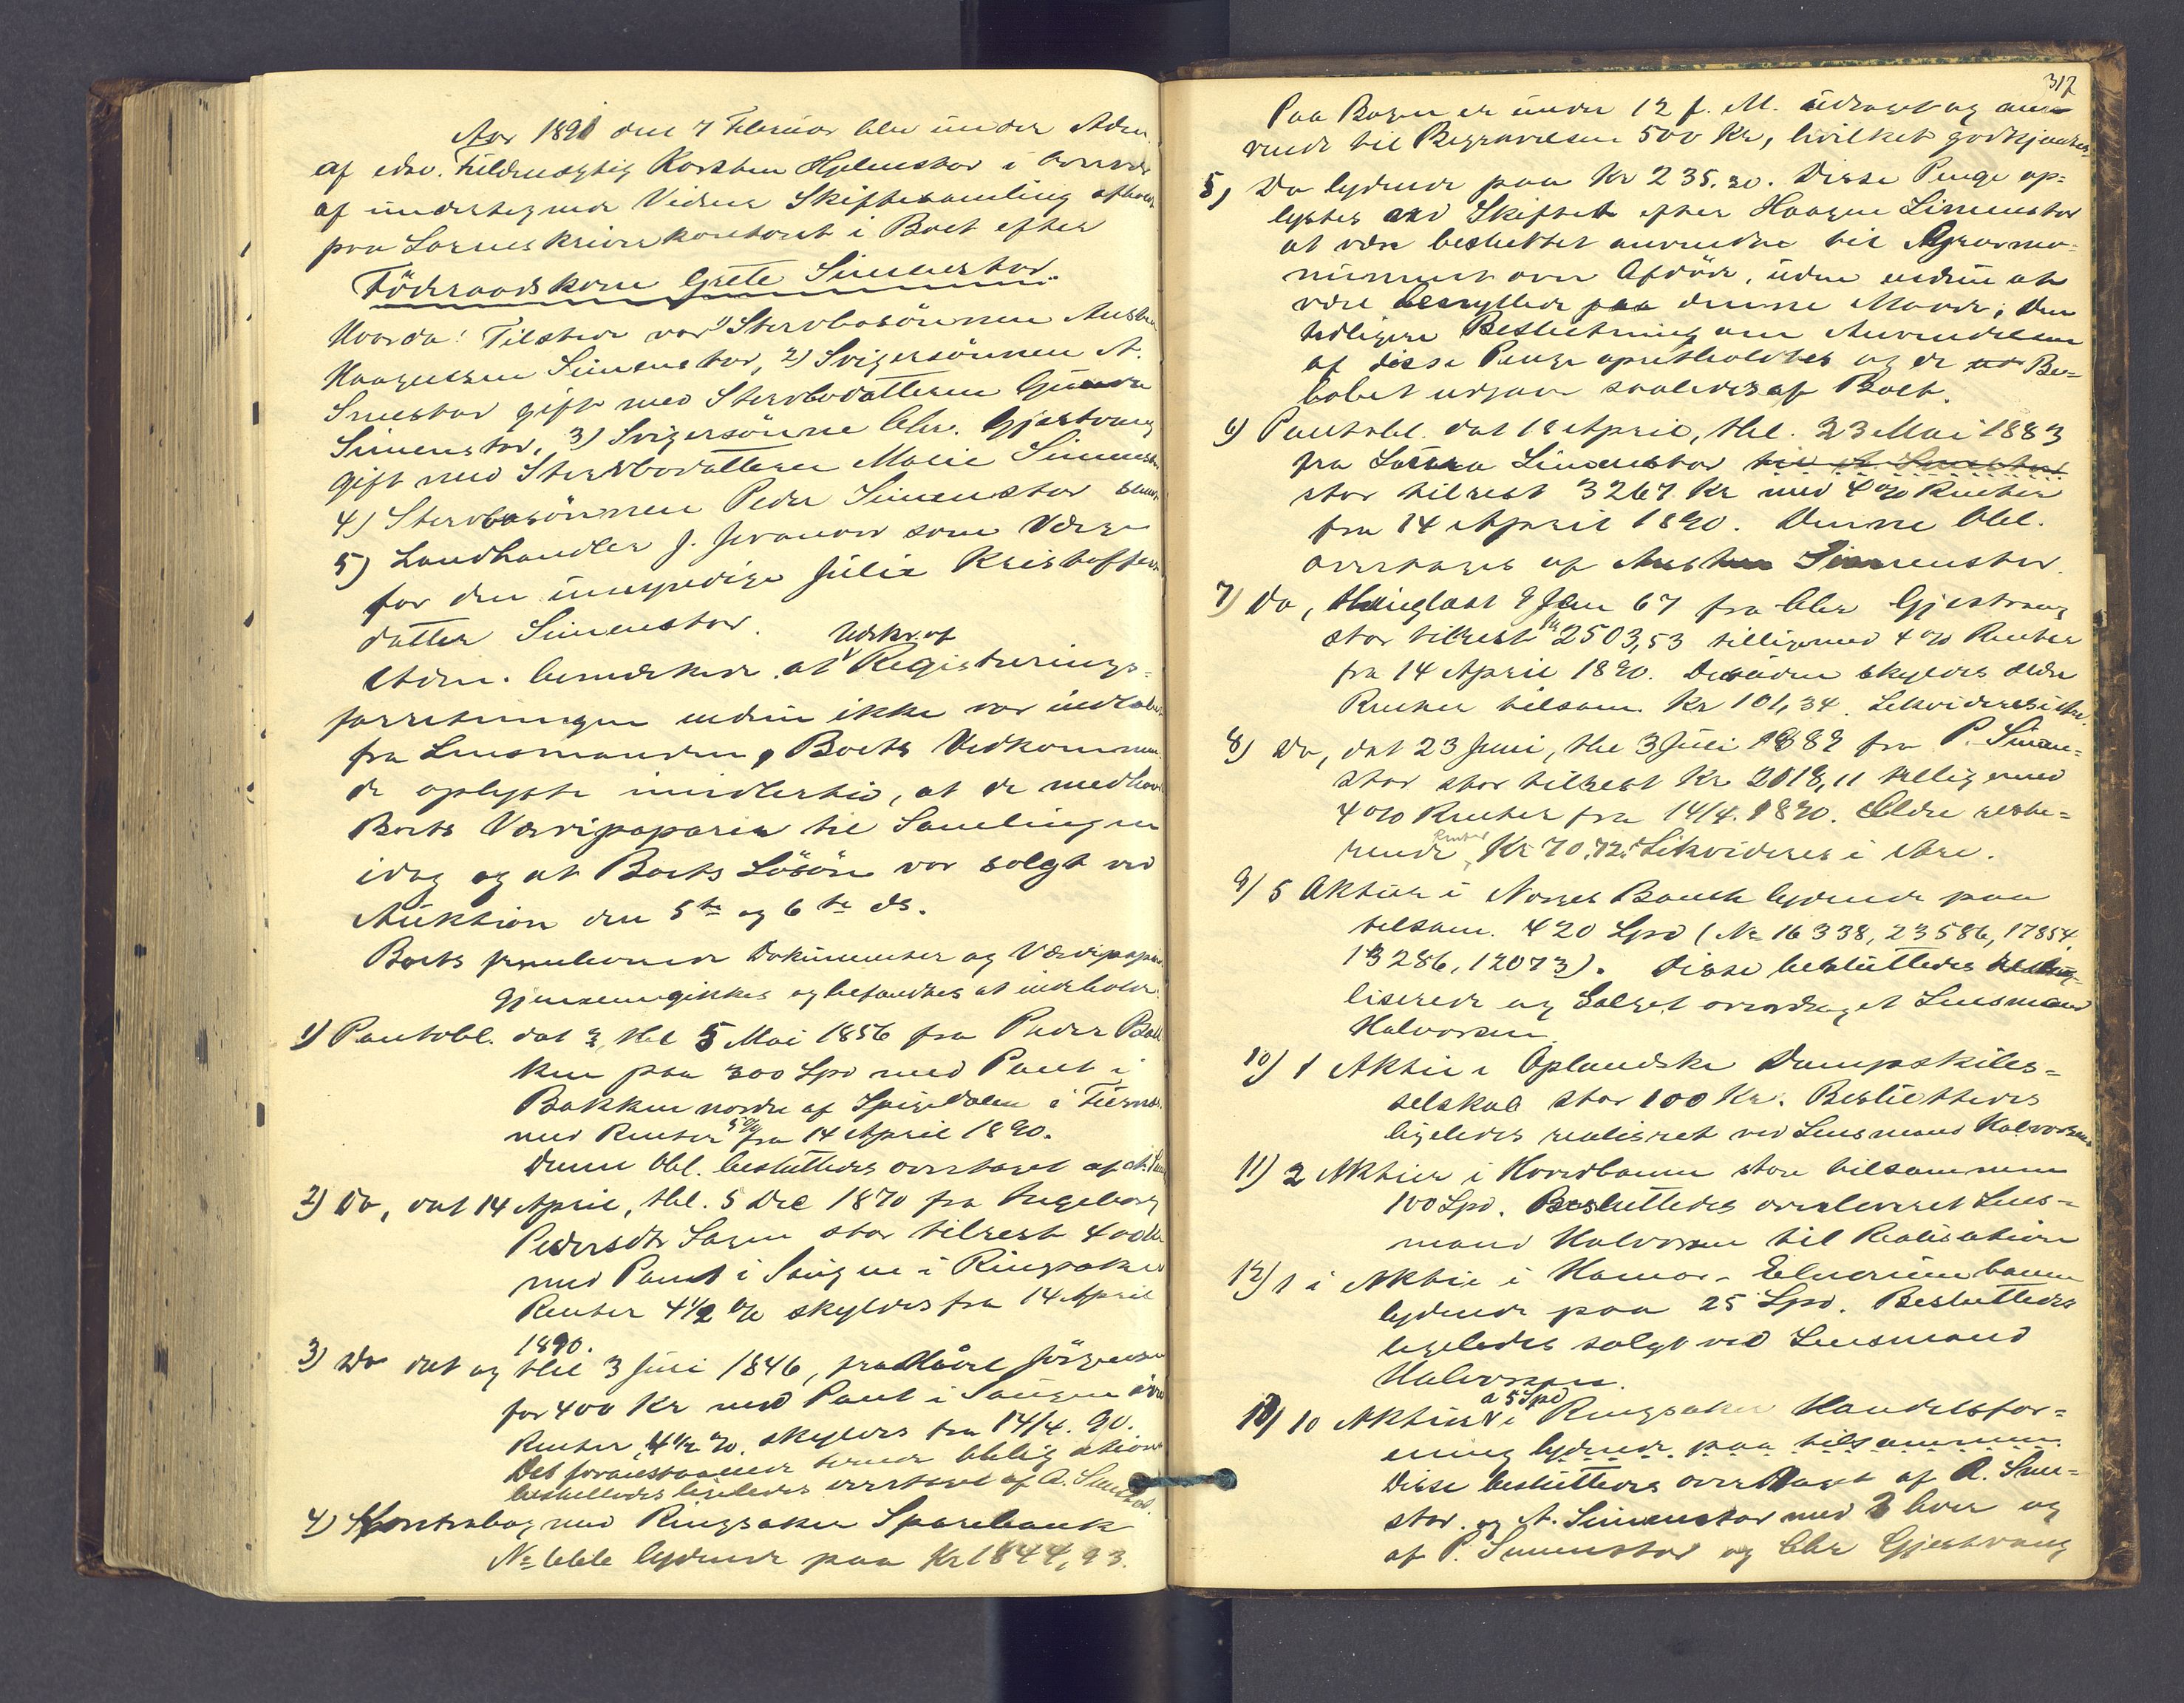 Aar 1891 den 7 Februar blev under Adm.
af edsv. Fuldmægtig Karsten Hjelmstad i Overvær
af undertegnede Vidner Skiftesamling afholdt
paa Sorenskriverkontoret i Boet efter
Föderaadskone Grete Simenstad.
Hvorda: Tilstede var 1) Stervbosönnen Austen
Haagensen Simenstad, 2) Svigersönnen A.
Smestad gift med Stervbodatteren Gunda
Simenstad, 3) Svigersönne Chr. Gjestvang
gift med Stervbodatteren Marie Simenstad
4) Stervbosönnen Peder Simenstad samt
5) Landhandler J. som Værge
for den umyndige Julie Kristoffers
datter Simenstad.
Udskr. af
Adm. bemærkede at Registrerings-
forretningen endnu ikke var indløbet
fra Lensmanden, Boets Vedkommen-
de oplyste imidlertid, at de medhavde
Boets Værdipapirer til Samlingen
idag og at Boets Lösöre var solgt ved
Auktion den 5te og 6te ds.
Boets fremkomne Dokumenter og Værdipapirer
gjennemgikkes og befandtes at indeholde:
1) Pantobl. dat 3, thl 5 Mai 1856 fra Peder Bak
ken paa 300 Spd med Pant i
Bakken nordre af i Furnes
med Renter 5 % fra 14 April 1890.
Denne Obl. besluttedes overtaget af A. Sme
2) Do, dat 14 April, thl. 5 Dec 1870 fra Ingeborg
Pedersdtr stor tilrest 400 Kr
med Pant i i Ringsaker
Renter 4 1/2 % skyldes fra 14 April
1890.
3) Do dat og thl 3 Juli 1846, fra Jörgensen
for 400 Kr med Pant i övre
Renter 4 1/2 %. skyldes fra 14/4. 90.
Det foranstaaende Obligation
besluttedes ligeledes overtaget af A. Smestad.
4) Kontrabog med Ringsaker Sparebank
No lydende paa Kr 1844,93.
317
Paa Bogen er under 12 f. M. udtaget og anv
vendt til Begravelsen 500 Kr, hvilket godkjendtes
5) Do lydende paa Kr 235.30. Disse Penge op-
lystes ved Skiftet efter Haagen Simenstad
at være besluttet anvendte til Gravmo-
nument over Afdöde, uden endnu at
være benyttede paa denne Maade; den
tidligere Beslutning om Anvendelsen
af disse Penge opretholdtes og de Be-
löbet udgaar saaledes af Boet.
6) Pantobl. dat 18 April, thl. 23 Mai 1883
fra Simenstad til A Smestad
stor tilrest 3267 Kr med 4 % Renter
fra 14 April 1890. Denne Obl.
overtages af Austen Simenstad.
7) Do, thinglæst 9 Jan 67 fra Chr Gjestvang
stor tilrest Kr 2503,53 tilligemed 4 % Renter
fra 14 April 1890. Desuden skyldes ældre
Renter tilsam. Kr 101,34. Likvideres i Arv.
8) Do, dat 23 Juni, thl 3 Juli 1889 fra P. Simen-
stad stor tilrest Kr 2018,11 tilligemed
4 % Renter fra 14/4. 1890. Ældre reste-
rende Renter Kr 70.72. Likvideres i Arv.
9) 5 Aktier i Norges Bank lydende paa
tilsam. 420 Spd (No 16338, 23586, 17854.
13286, 12073). Disse besluttedes
liserede og Salget overdraget Lensmand
Halvorsen
10) 1 Aktie i Oplandske Dampskibs-
selskab stor 100 Kr. Besluttedes
ligeledes realiseret ved Lensmand Halvorsen
11) 2 Aktier i Hovedbanen store tilsammen
100 Spd. Besluttedes overleveret Lens-
mand Halvorsen til Realisation
12) 1 i Aktie i Hamar-Elverumbanen
lydende paa 25 Spd. Besluttedes
ligeledes solgt ved Lensmand
Halvorsen.
13) 10 Aktier a 5 Spd i Ringsaker Handelsfor-
ening lydende paa tilsammen
Disse besluttedes overtaget af A. Sme-
stad. og A. Simenstad med 3 hver og
af P. Simenstad og Chr Gjestvang